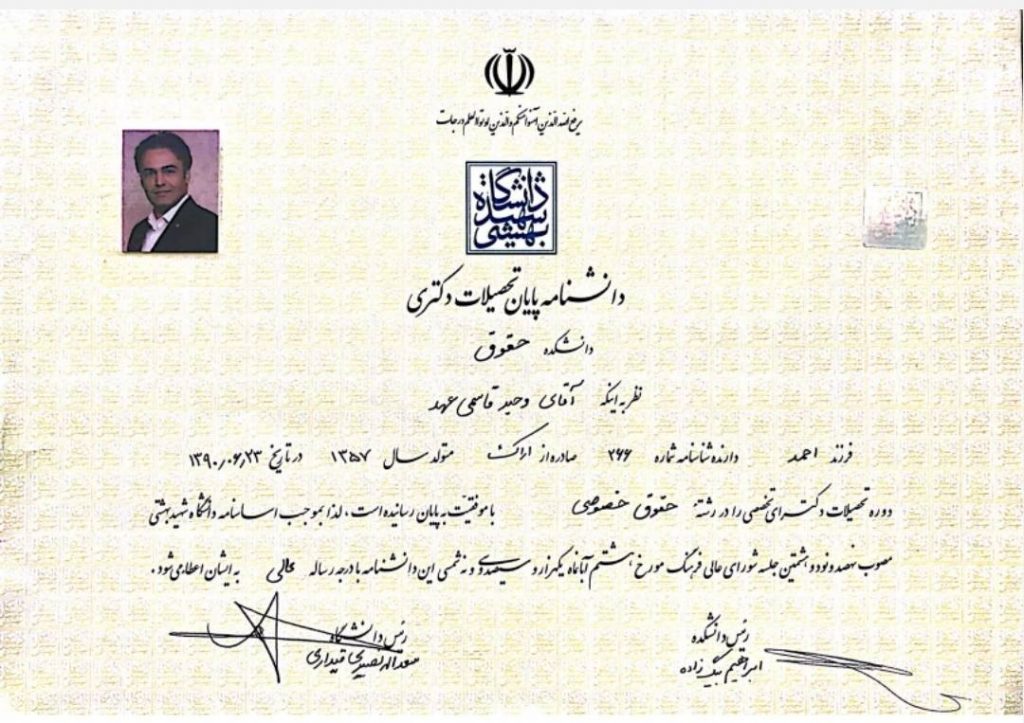 یرفع الله الذین آمنوا منکم والذین اوتوا العلم درجات
دانشگاه شهید بهشتی
دانشنامه پایان تحصیلات دکتری
دانشکده حقوق
نظر به اینکه آقای وحید قاسمی عهد
فرزند احمد دارنده شناسنامه شماره ۲۶۶ صادره از اراک متولد سال ۱۳۵۷ در تاریخ ۱۳۹۰٫۰۶٫۲۳
دوره تحصیلات دکترای تخصصی را در رشته حقوق خصوصی با موفقیت به پایان رسانده است، لذا بموجب اساسنامه دانشگاه شهید بهشتی
مصوب نهصد و نود و هشتمین جلسه شورای عالی فرهنگ مورخ هشتم آبانماه یکهزار و سیصد و سی و نه شمسی این دانشنامه با درجه رساله عالی به ایشان اعطا می شود.
رئیس دانشکده
ابراهیم بیگ زاده
رئیس دانشگاه
سعداله نصیری قیداری